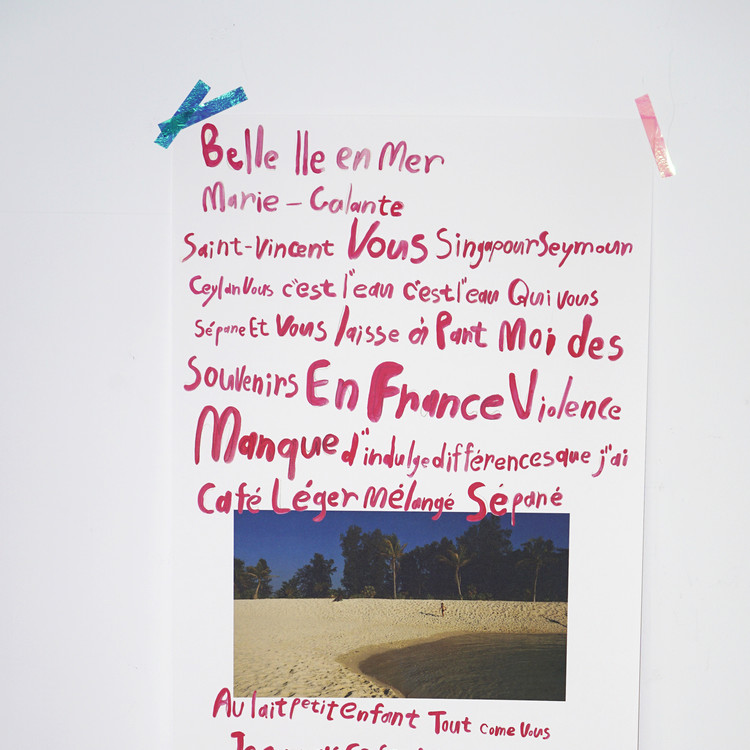 Belle Ile en Mer
Marie-Galante
Saint-Vincent Vous Singapour Seymour
Ceylan Vous c'est l'eau c'est l'eau Qui vous
Sépare Et Vous laisse à Part Moi des
Souvenirs En France Violence
Manque d'indulgedifférencesque j'ai
Café Léger Mélangé Sépané
Au lait petit enfant Tout come Vous